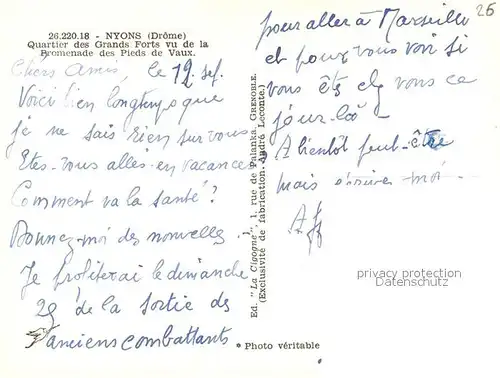 26.220.18 - NYONS (Drôme)
Quartier des Grands Forts vu de la
Promenade des Pieds de Vaux.
Chers Amis, le 12. sep.
Voici bien longtemps que
je ne sais rien sur vous
Etes-vous alles en vacances
Comment va la santé ?
Donnez-moi des nouvelles.
Je profiterai le dimanche
29 de la sortie des
anciens combattants
Ed. "La Cigogne", 1, rue de Palanka, GRENOBLE.
(Exclusivité de fabrication André Leconte.)
* Photo véritable
26
pour aller à Marseille
et pour vous voir si
vous êtes chez vous ce
jour-là
A bientôt peut-être
mais écrivez-moi.
privacy protection
Datenschutz